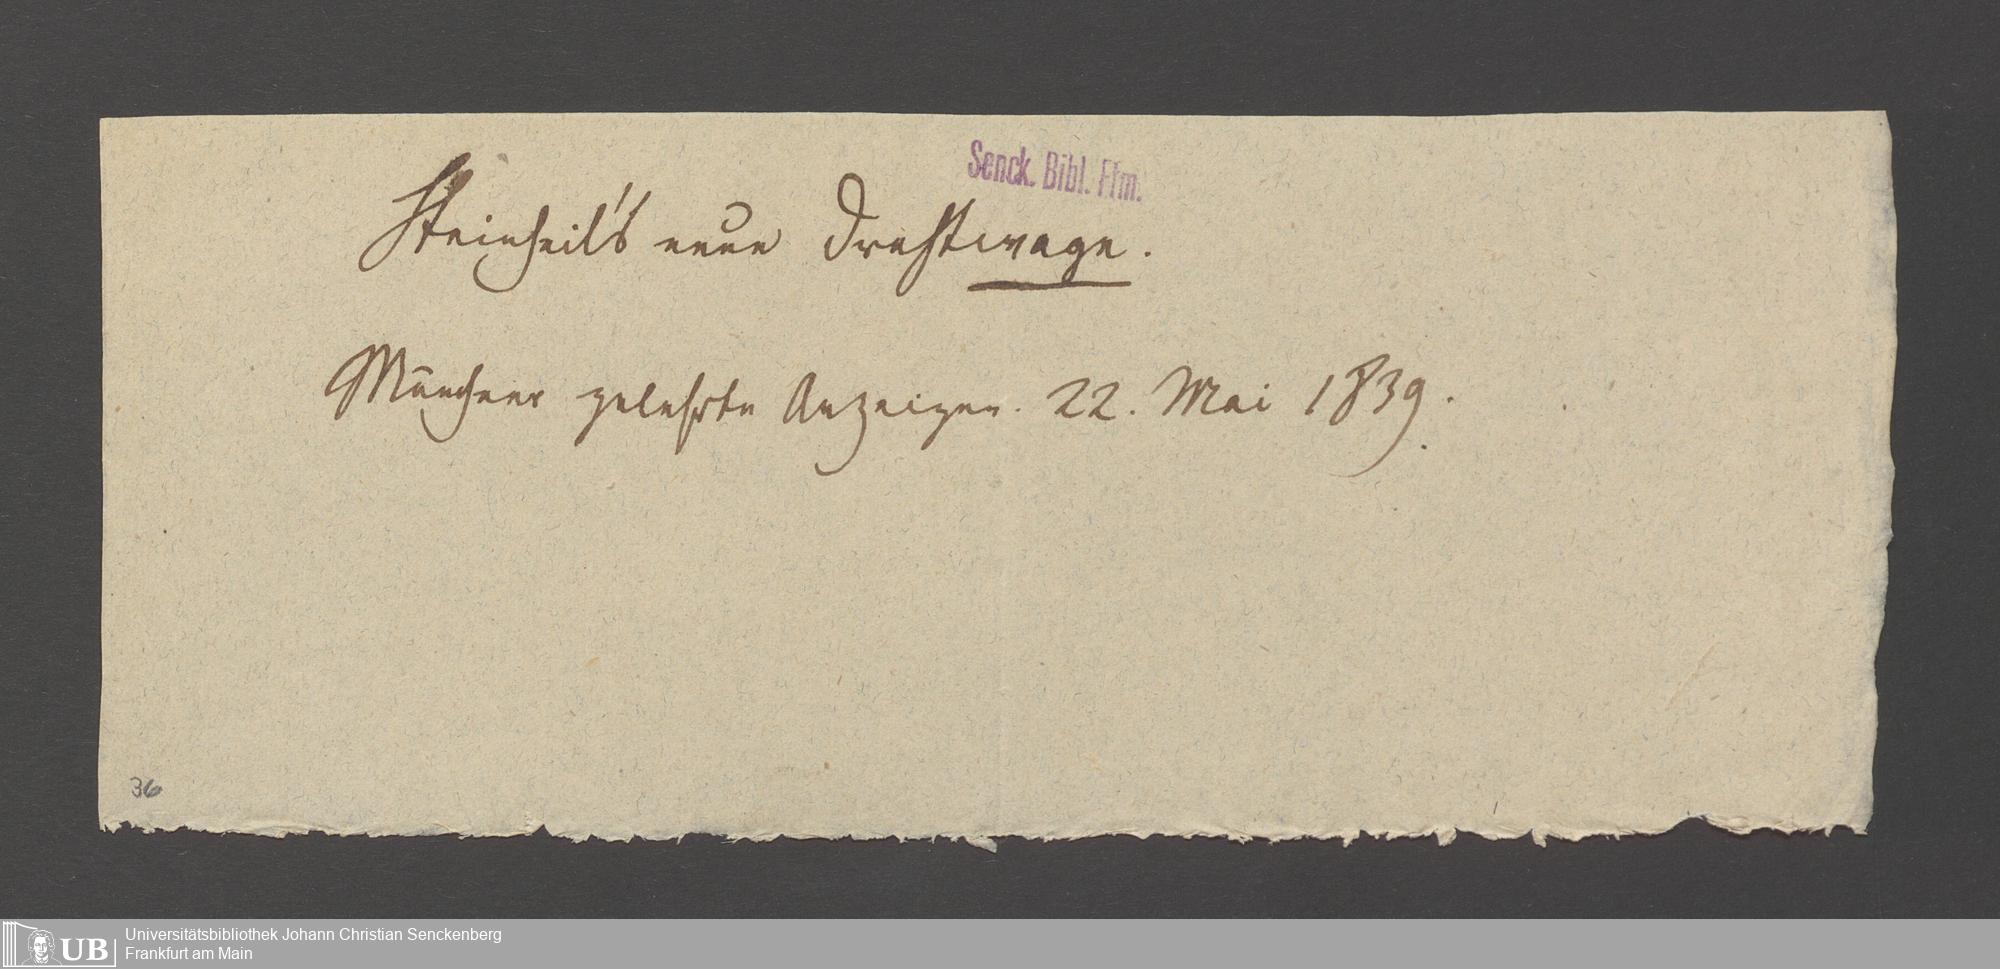 Senck. Bibl. Ffm.
Steinheil's neue Drahtwage.
Münchner gelehrte Anzeigen. 22. Mai 1839.
36
UB
Universitätsbibliothek Johann Christian Senckenberg
Frankfurt am Main